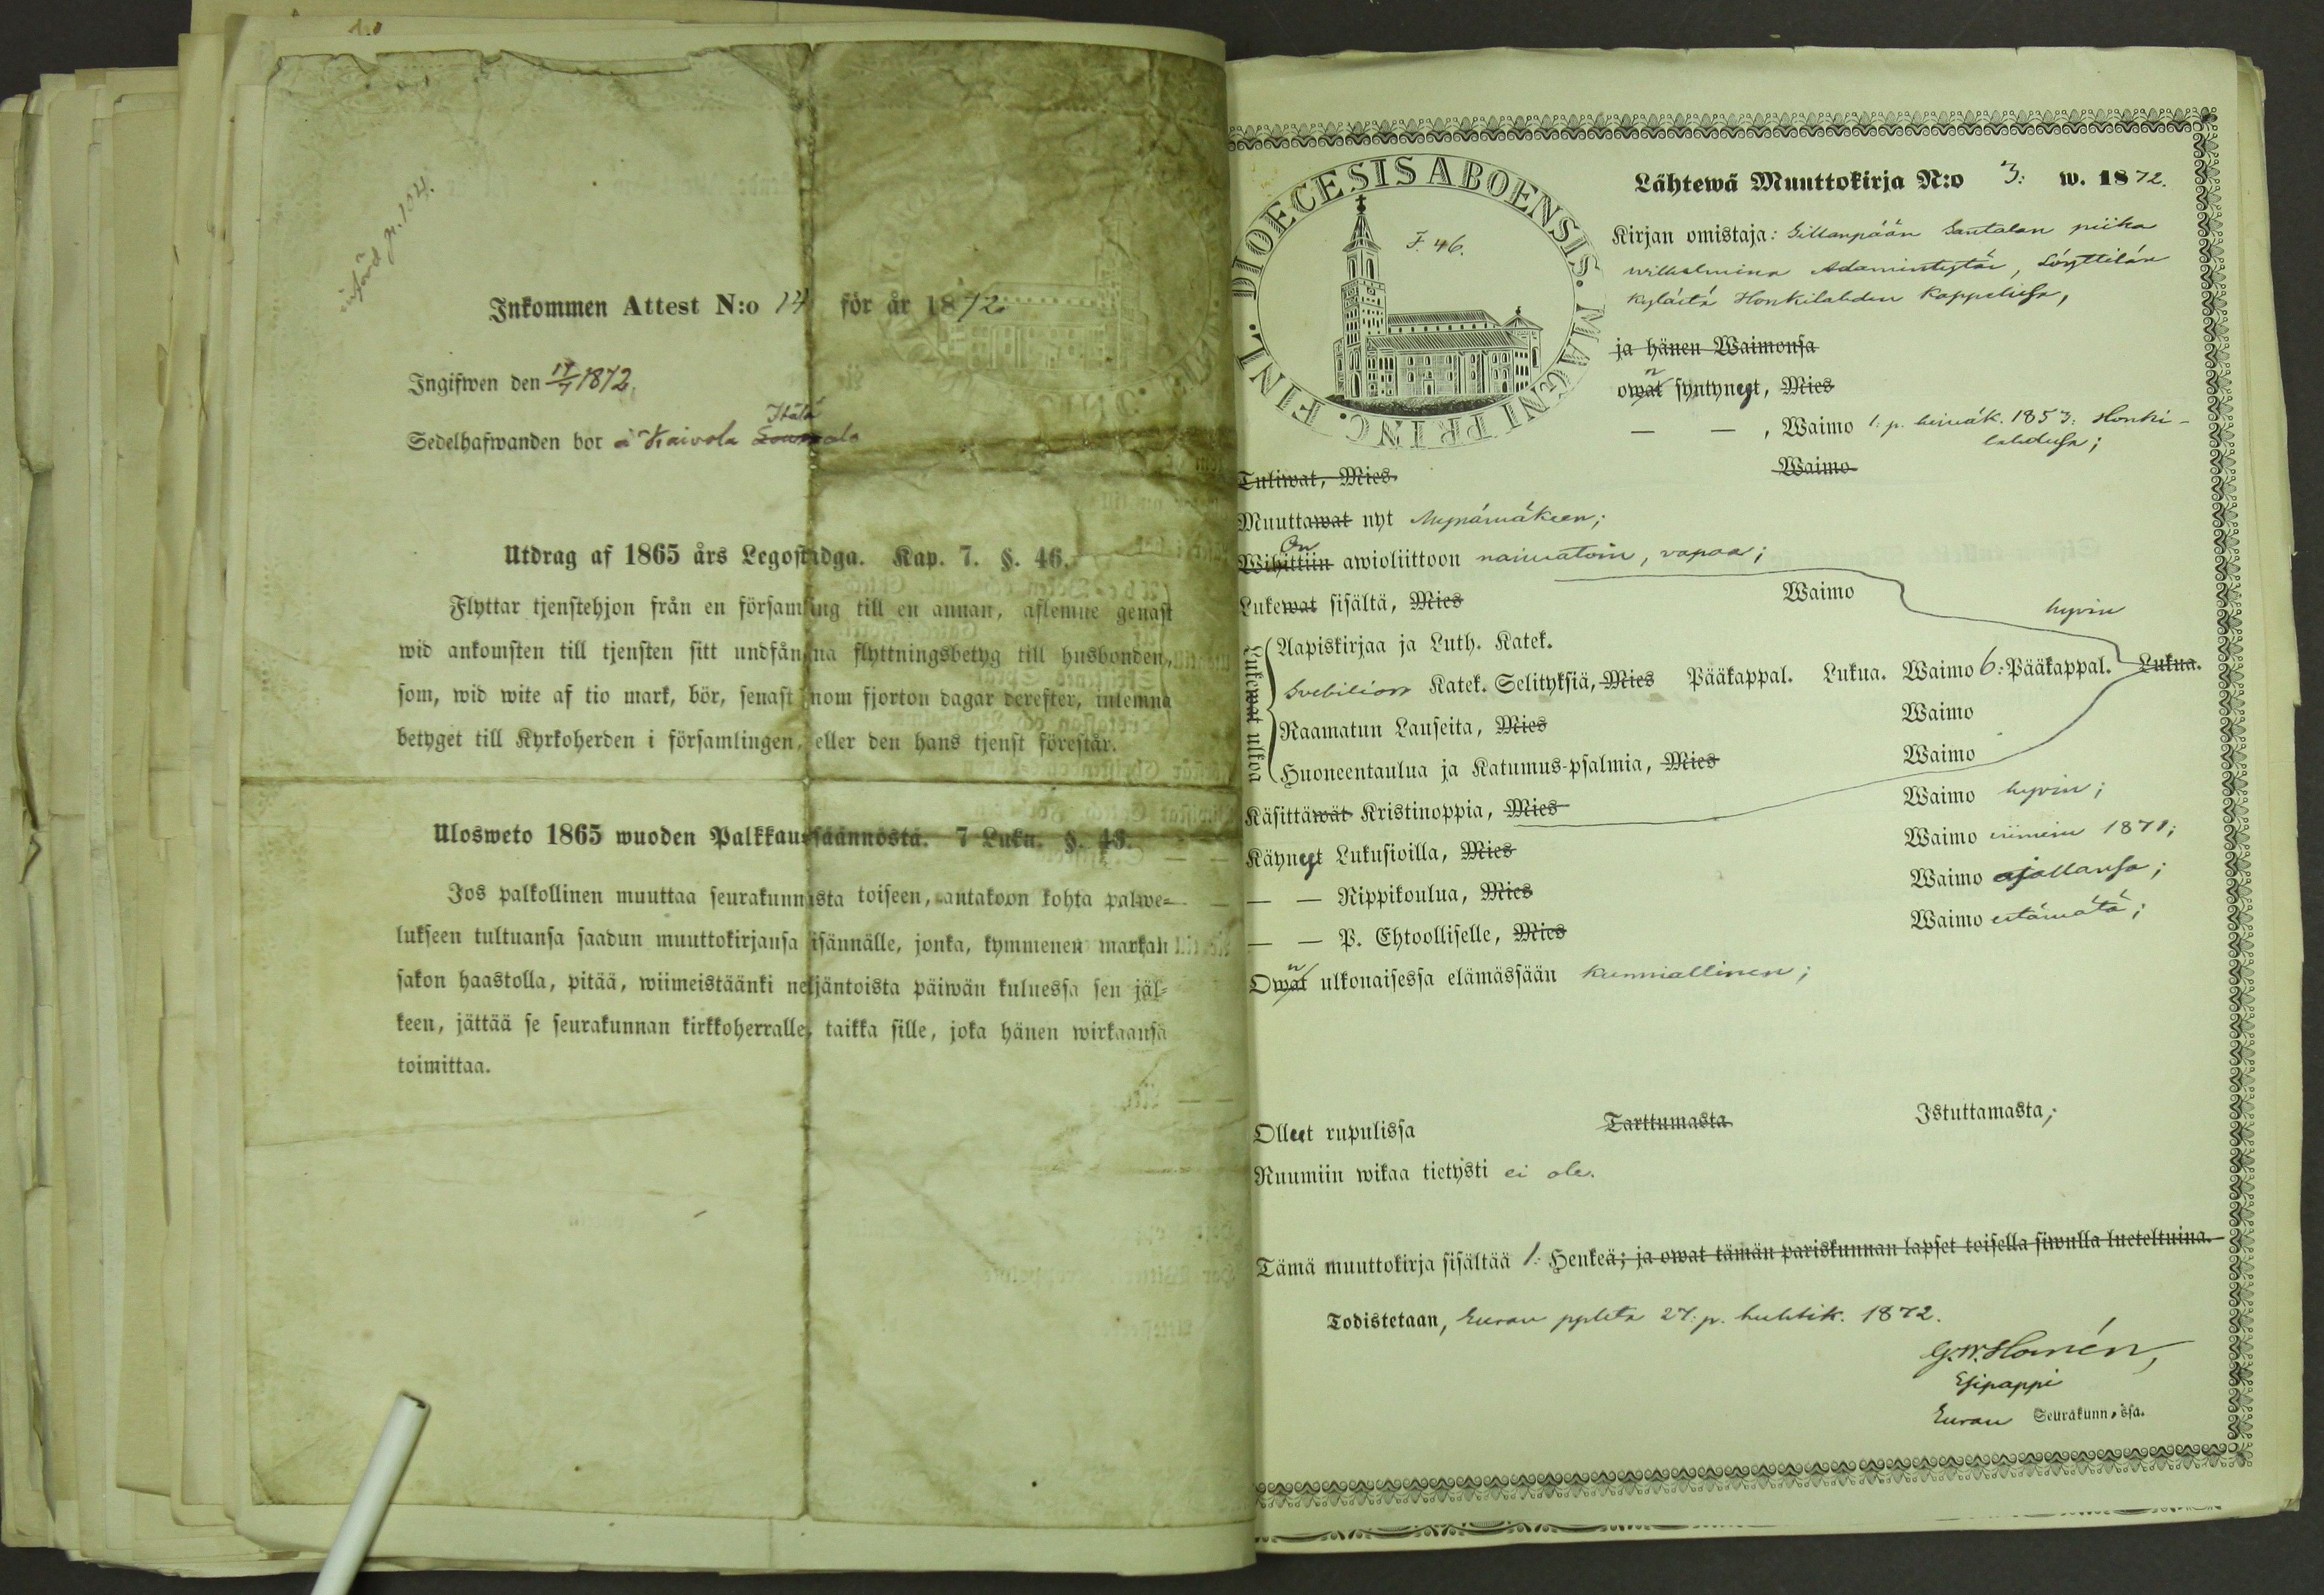 införd p. 104.
Inkommen Attest N:o 14 för år 1872.
Ingifwen den 17/7 1872.
Itälä
Sedelhafwanden bor å Kaivola
Utdrag af 1865 års Legostadga. Kap. 7. §. 46.
Flyttar tjenstehjon från en församling till en annan, aflemne genast
wid ankomsten till tjensten sitt undfångna flyttningsbetyg till husbonden,
som, wid wite af tio mark, bör, senast inom fjorton dagar derefter, inlemna
betyget till Kyrkoherden i församlingen, eller den hans tjenst förestår.
Ulosweto 1865 wuoden Palkkaussäännöstä. 7 Luku. §. 43.
Jos palkollinen muuttaa seurakunnasta toiseen, antakoon kohta palwe-
lukseen tultuansa saadun muuttokirjansa isännälle, jonka, kymmenen markan
sakon haastolla, pitää, wiimeistäänki neljäntoista päiwän kuluessa sen jäl-
keen, jättää se seurakunnan kirkkoherralle, taikka sille, joka hänen wirkaansa
toimittaa.
FINL. DIOECESIS ABOENSIS. MAGNI PRINC.
F. 46.
Lähtewä Muuttokirja N:o 3: w. 1872.
Kirjan omistaja: Sillanpään Santalan piika
Wilhelmina Adamintytär, Löyttilän
kylästä Honkilahden kappelissa,
ja hänen Waimonsa
owat n syntynyt, Mies
— — , Waimo 1: p. heinäk. 1853: Honki-
lahdessa;
Tuliwat, Mies Waimo
Muuttawat nyt Mynämäkeen;
On
Wihittiin awioliittoon naimatoin, vapaa;
Lukewat sisältä, Mies Waimo hyvin
Lukewat ulkoa
Aapiskirjaa ja Luth. Katek.
Svebilion Katek. Selityksiä, Mies Pääkappal. Lukua. Waimo 6: Pääkappal. Lukua.
Raamatun Lauseita, Mies Waimo
Huoneentaulua ja Katumus-psalmia, Mies Waimo
Käsittäwät Kristinoppia, Mies Waimo hyvin;
Käynyt Lukusioilla, Mies Waimo viimein 1871;
— — Rippikoulua, Mies Waimo ajallansa;
— — P. Ehtoolliselle, Mies Waimo estämätä;
Owat n ulkonaisessa elämässään kunniallinen;
Ollut rupulissa Tarttumasta Istuttamasta;
Ruumiin wikaa tietysti ei ole.
Tämä muuttokirja sisältää 1: Henkeä; ja owat tämän pariskunnan lapset toisella siwulla lueteltuina.
Todistetaan, Euran pplsta 27: p. huhtik. 1872.
G. W.
Esipappi
Euran Seurakunn,ssa.